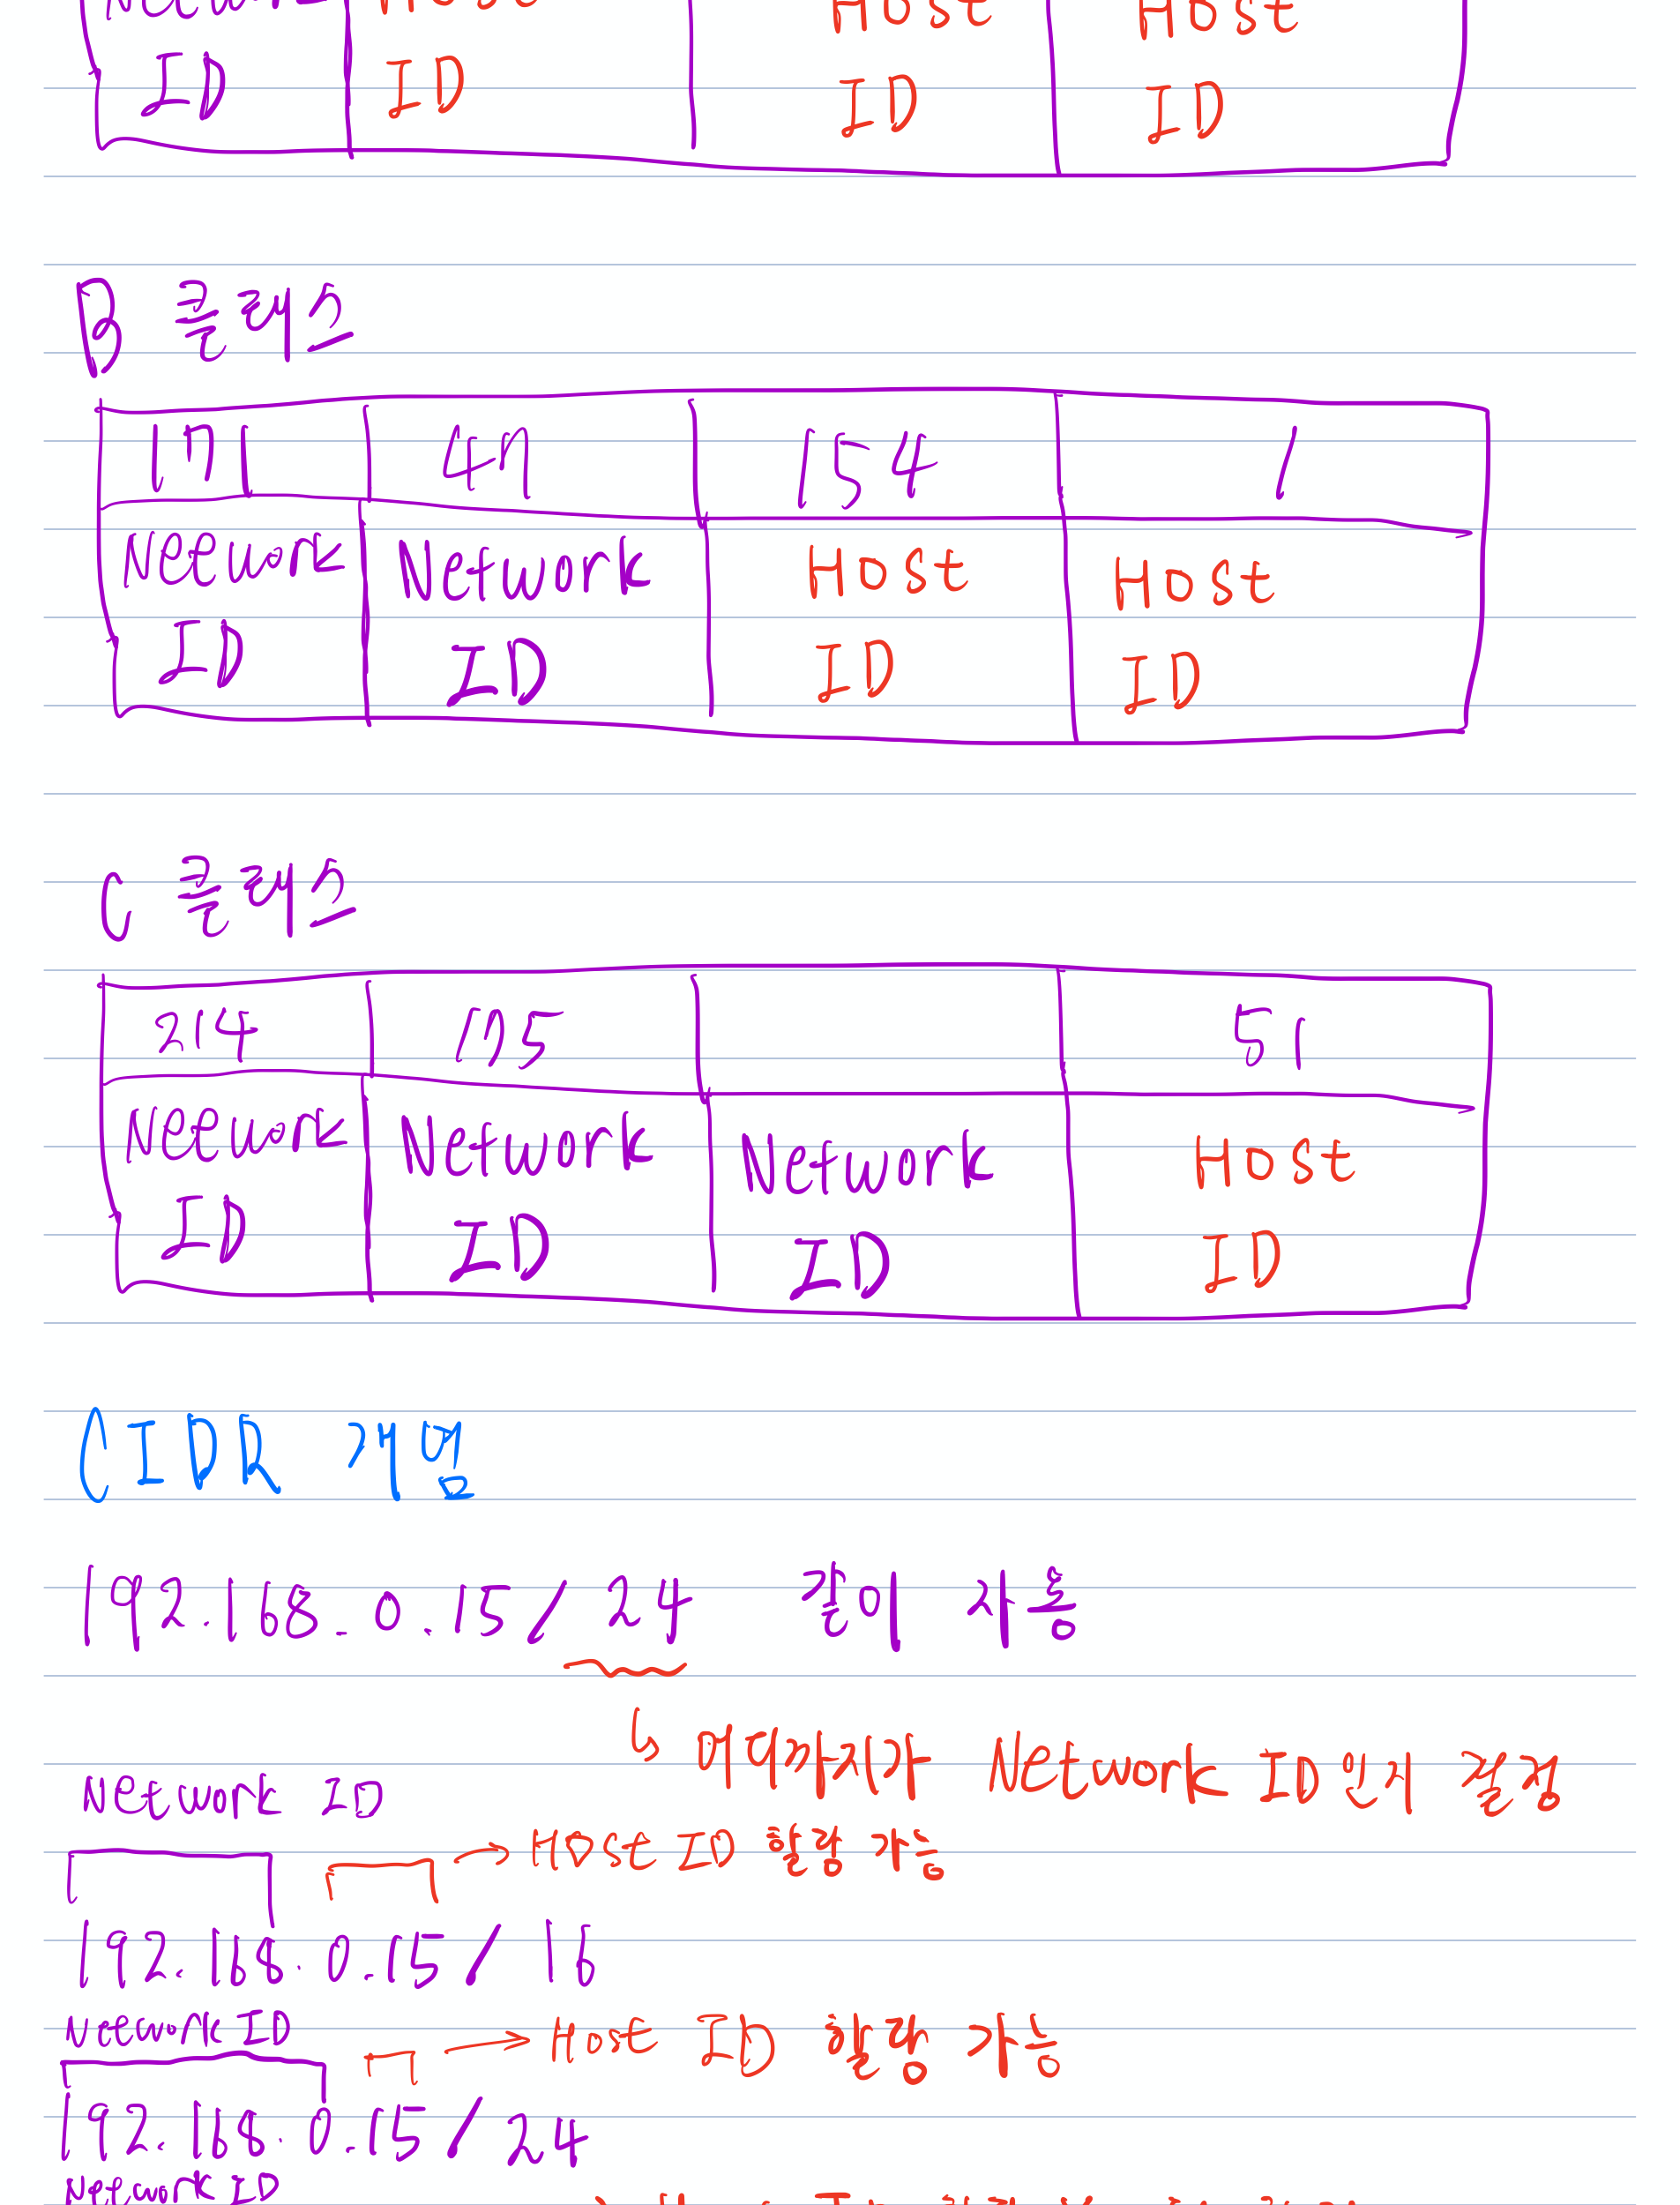 Network Host Host
ID ID ID ID
B 클래스
171 47 154 1
Network Network Host Host
ID ID ID ID
C 클래스
214 175 51
Network Network Network Host
ID ID ID ID
CIDR 개념
192.168.0.15/24 같이 사용
↳ 어디까지가 Network ID인지 결정
Network ID
→ Host ID 할당 가능
192.168.0.15/16
Network ID → Host ID 할당 가능
192.168.0.15/24
Network ID